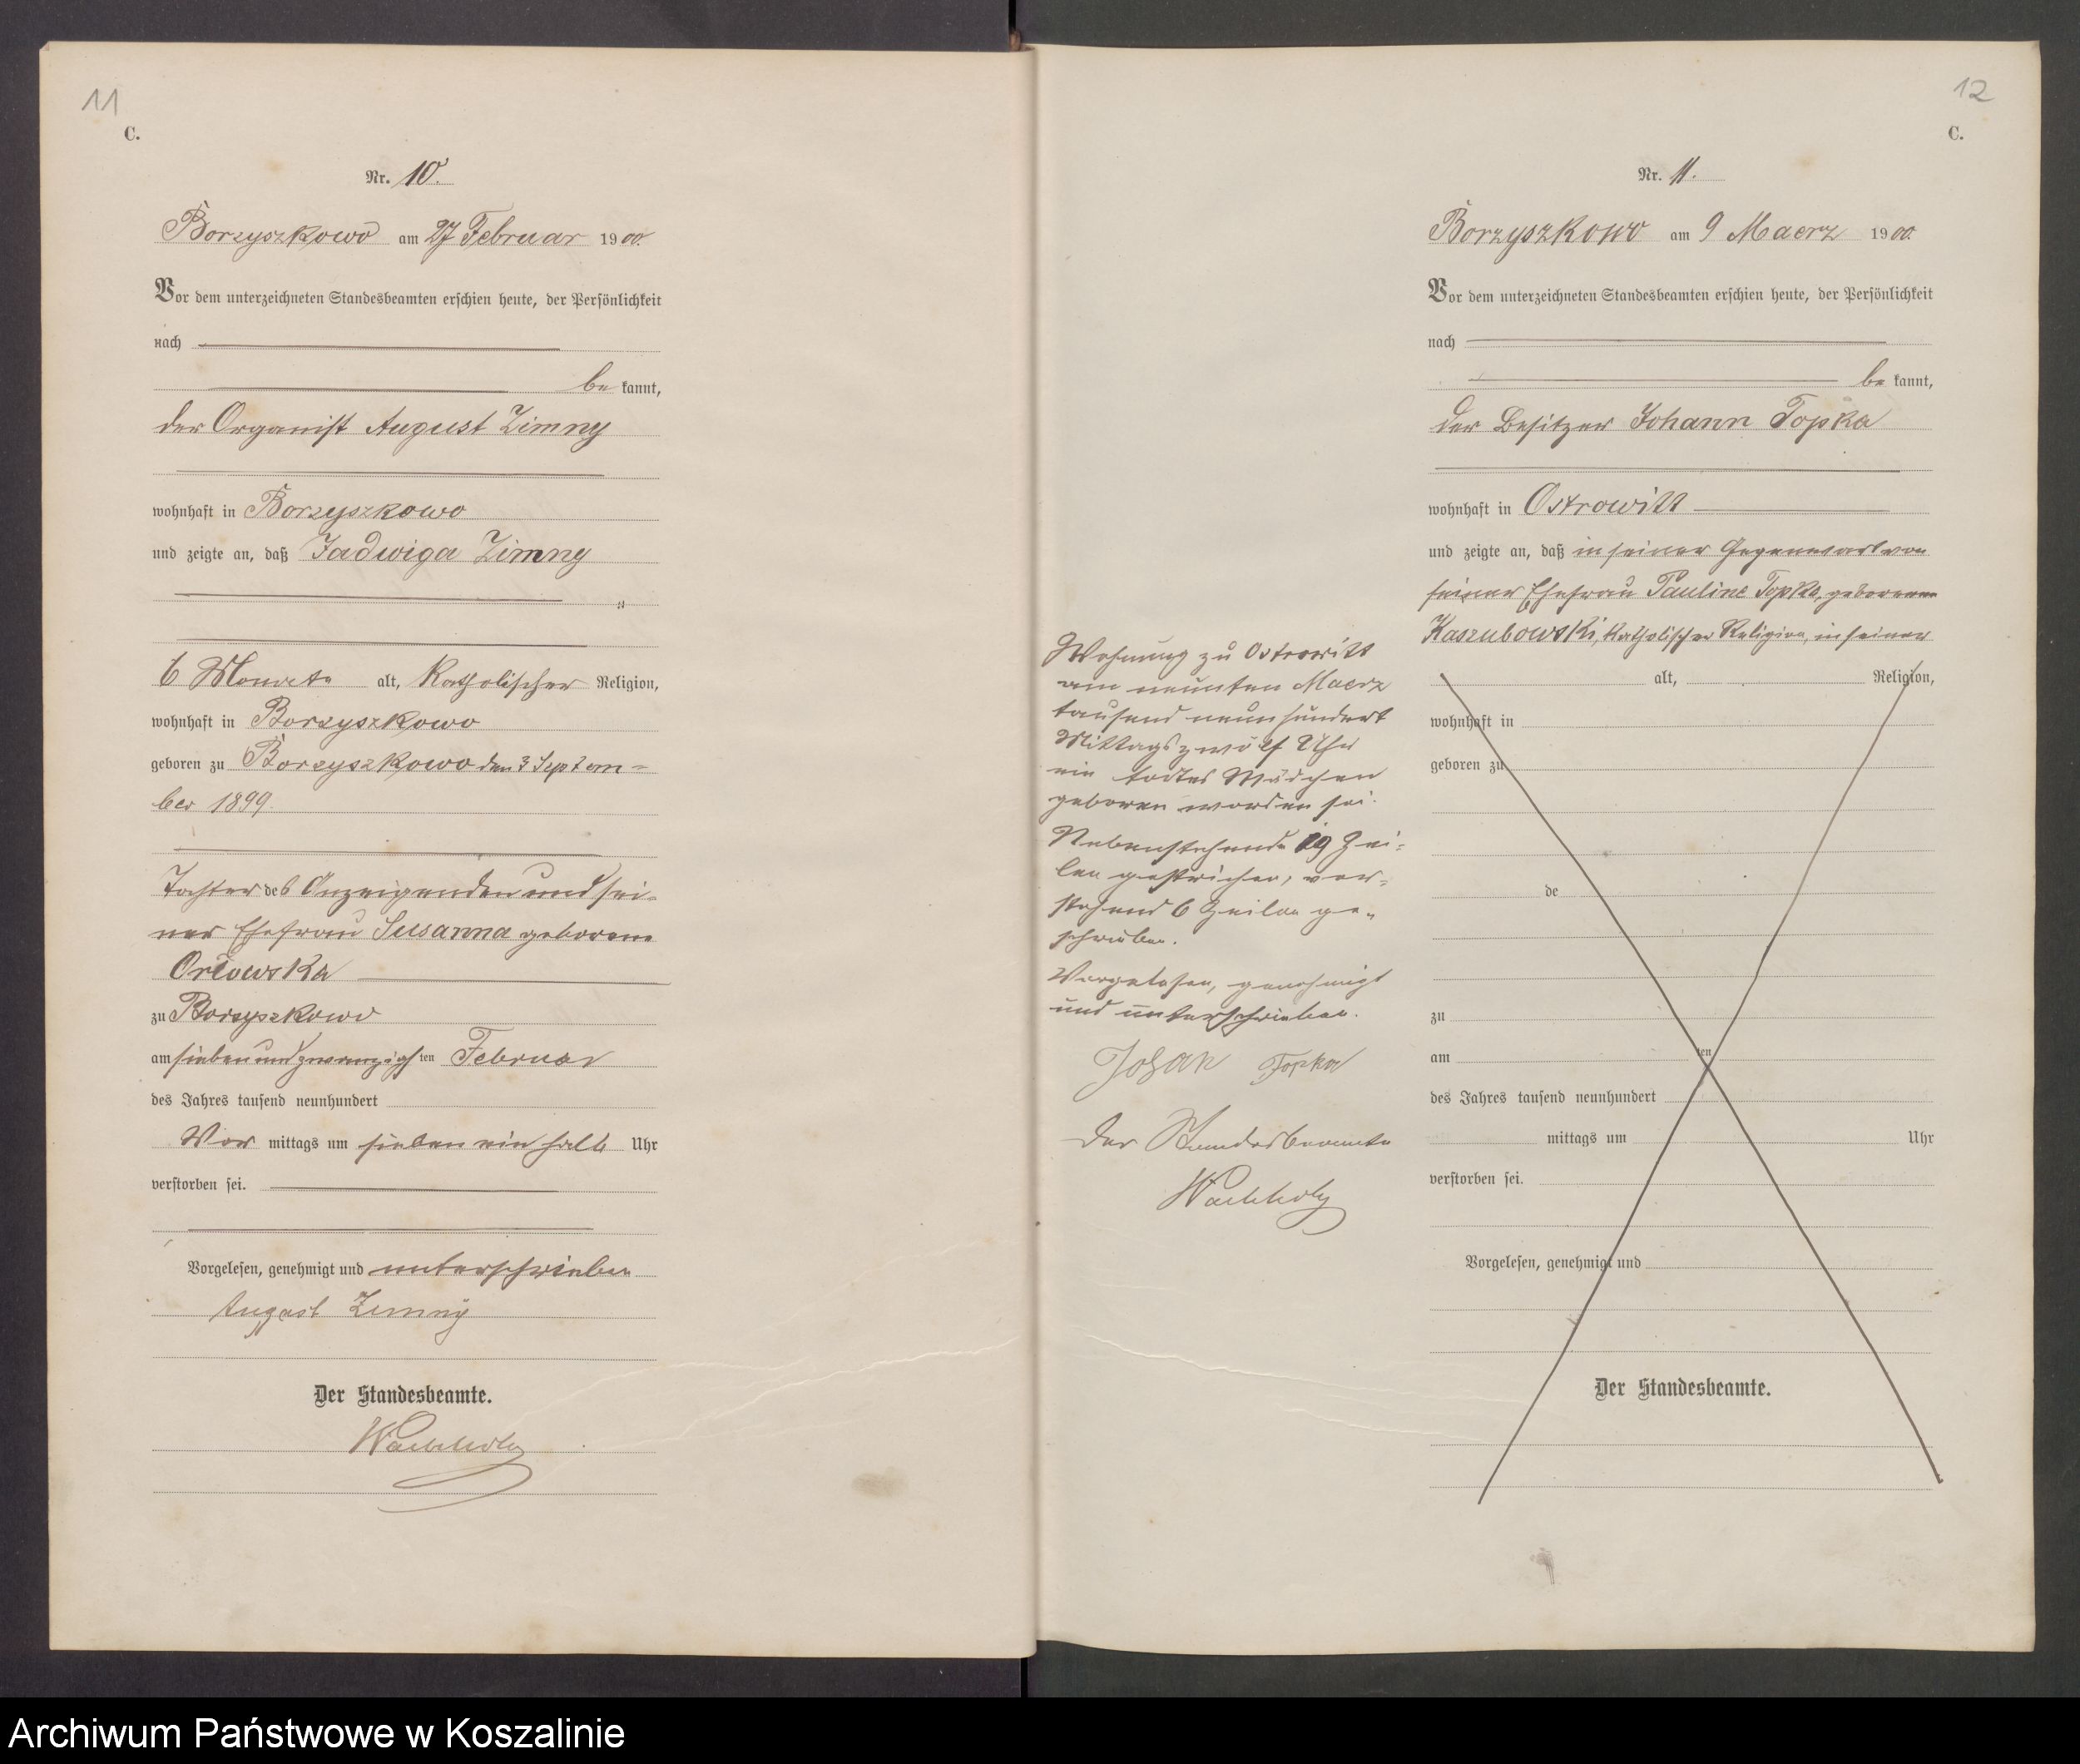 11
C.
Nr. 10.
Borzyszkowo am 27 Februar 1900.
Vor dem unterzeichneten Standesbeamten erschien heute, der Persönlichkeit
nach
be kannt,
der Organist August Zimny
wohnhaft in Borzyszkowo
und zeigte an, daß Jadwiga Zimny
6 Monate alt, katholischer Religion,
wohnhaft in Borzyszkowo
geboren zu Borzyszkowo den 3 Septem=
ber 1899.
Tochter des Anzeigenden und sei=
ner Ehefrau Susanna geborene
Orlowska
zu Borzyszkowo
am sieben und zwanzigsten Februar
des Jahres tausend neunhundert
Vor mittags um sieben ein halb Uhr
verstorben sei.
Vorgelesen, genehmigt und unterschrieben
August Zimny
Der Standesbeamte.
Wachholz
12
C.
Nr. 11.
Borzyszkowo am 9 Maerz 1900.
Vor dem unterzeichneten Standesbeamten erschien heute, der Persönlichkeit
nach
be kannt,
der Besitzer Johann Topka
wohnhaft in Ostrowitt
und zeigte an, daß in seiner Gegenwart von
seiner Ehefrau Pauline Topka, geborenen
Kaszubowski, katholischer Religion, in seiner
Wohnung zu Ostrowitt
am neunten Maerz
tausend neunhundert
Mittags zwölf Uhr
ein todtes Mädchen
geboren worden sei.
Nebenstehende 19 Zei=
len gestrichen, vor=
stehend 6 Zeilen ge=
schrieben.
Vorgelesen, genehmigt
und unterschrieben.
Johan Topka
Der Standesbeamte
Wachholz
alt, Religion,
wohnhaft in
geboren zu
de
zu
am ten
des Jahres tausend neunhundert
mittags um Uhr
verstorben sei.
Vorgelesen, genehmigt und
Der Standesbeamte.
Archiwum Państwowe w Koszalinie